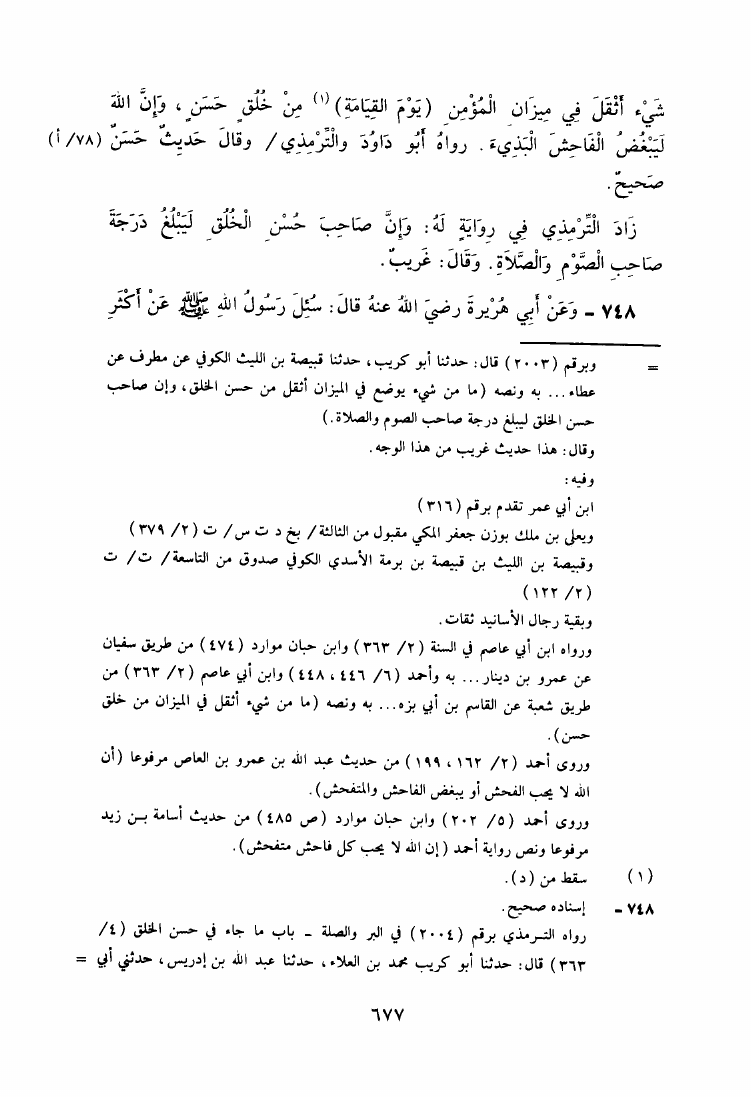 شَيْء أَثْقَلَ فِي مِيزَانِ الْمُؤْمِنِ (يَوْمَ القِيَامَةِ)(١) مِنْ خُلُقٍ حَسَنٍ ، وَإِنَّ اللهَ
لَيَبْغُضُ الْفَاحِشَ الْبَذِيءَ . رواهُ أَبُو دَاوُدَ والتِّرْمِذِي/ وقالَ حَدِيثٌ حَسَنٌ (٧٨/ أ)
صَحيحٌ.
زَادَ التِّرْمِذِي فِي رِوَايَةٍ لَهُ: وَإِنَّ صَاحِبَ حُسْنِ الْخُلُقِ لَيَبْلُغُ دَرَجَةَ
صَاحِبِ الصَّوْمِ وَالصَّلاَةِ. وَقَالَ: غَرِيبٌ.
٧٤٨ - وَعَنْ أَبِي هُرْيرةَ رضيَ اللهُ عنهُ قالَ: سُئِلَ رَسُولُ اللهِ ﷺ عَنْ أَكْثَرِ
= وبرقم (٢٠٠٣) قال: حدثنا أبو كريب، حدثنا قبيصة بن الليث الكوفي عن مطرف عن
عطاء... به ونصه (ما من شيء يوضع في الميزان أثقل من حسن الخلق، وإن صاحب
حسن الخلق ليبلغ درجة صاحب الصوم والصلاة.)
وقال: هذا حديث غريب من هذا الوجه.
وفيه:
ابن أبي عمر تقدم برقم (٣١٦)
ويعلى بن ملك بوزن جعفر المكي مقبول من الثالثة/ بخ د ت س/ ت (٢/ ٣٧٩)
وقبيصة بن الليث بن قبيصة بن برمة الأسدي الكوفي صدوق من التاسعة/ ت/ ت
(٢/ ١٢٢)
وبقية رجال الأسانيد ثقات.
ورواه ابن أبي عاصم في السنة (٢/ ٣٦٣) وابن حبان موارد (٤٧٤) من طريق سفيان
عن عمرو بن دينار... به وأحمد (٦/ ٤٤٦، ٤٤٨) وابن أبي عاصم (٢/ ٣٦٣) من
طريق شعبة عن القاسم بن أبي بزه... به ونصه (ما من شيء أثقل في الميزان من خلق
حسن).
وروى أحمد (٢/ ١٦٢، ١٩٩) من حديث عبد الله بن عمرو بن العاص مرفوعا (أن
الله لا يحب الفحش أو يبغض الفاحش والمتفحش).
وروى أحمد (٥/ ٢٠٢) وابن حبان موارد (ص ٤٨٥) من حديث أسامة بن زيد
مرفوعا ونص رواية أحمد (إن الله لا يحب كل فاحش متفحش).
(١) سقط من (د).
٧٤٨ - إسناده صحيح.
رواه الترمذي برقم (٢٠٠٤) في البر والصلة - باب ما جاء في حسن الخلق (٤/
٣٦٣) قال: حدثنا أبو كريب محمد بن العلاء، حدثنا عبد الله بن إدريس، حدثني أبي =
٦٧٧